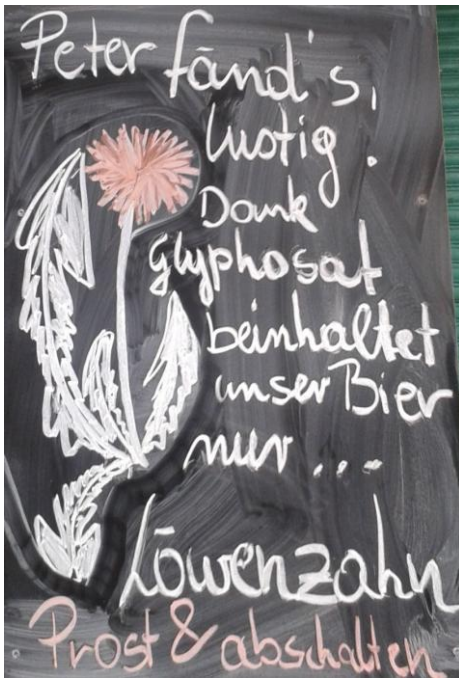 Peter fänd's
lustig.
Dank
Glyphosat
beinhaltet
unser Bier
nur ...
Löwenzahn
Prost & abschalten